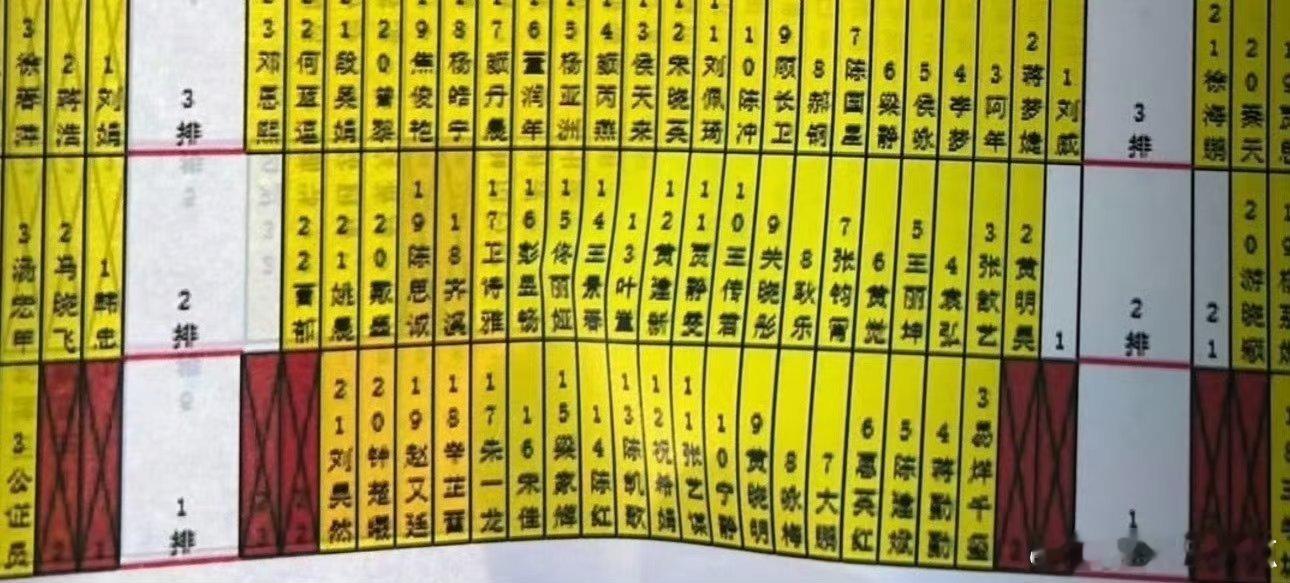 3徐春萍
2蒋浩
1刘娟
3排
23邓恩熙
22何蓝逗
21段奥娟
20曾黎
19焦俊艳
18杨皓宁
17颜丹晨
16董润年
15杨亚洲
14颜丙燕
13侯天来
12宋晓英
11刘佩琦
10陈冲
9顾长卫
8郝钢
7陈国星
6梁静
5侯咏
4李梦
3阿年
2蒋梦婕
1刘威
3排
21徐海鹏
20蔡天
3汤宏甲
2冯晓飞
1韩忠
2排
22曹郁
21姚晨
20
19陈思诚
18齐溪
17卫诗雅
16彭昱畅
15佟丽娅
14王景春
13叶童
12黄建新
11贾静雯
10王传君
9关晓彤
8耿乐
7张钧甯
6黄觉
5王丽坤
4袁弘
3张歆艺
2黄明昊
1
2排
21
20游晓颖
3公证员
1排
21刘昊然
20钟楚曦
19赵又廷
18辛芷蕾
17朱一龙
16宋佳
15梁家辉
14陈红
13陈凯歌
12祝希娟
11张艺谋
10宁静
9黄晓明
8咏梅
7大鹏
6惠英红
5陈建斌
4蒋勤勤
3易烊千玺
1